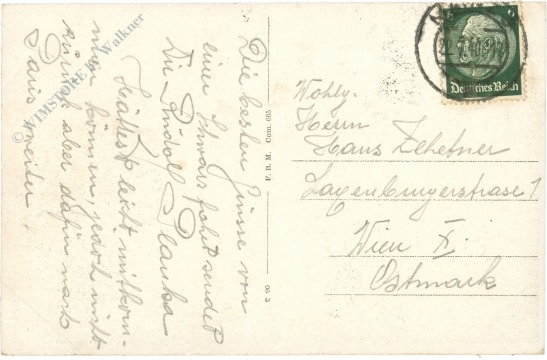 Die besten Grüsse von
einer Schwarzfahrt sendet
Dir Rudolf Planka
Hättest leicht mitkom-
men können, jedoch nicht
zurück aber dafür nach
Paris weiter.
WIMSTORE by Walkner
F. B. M. Com. 665
C 90
Deutsches Reich
6
22.7.40
Wohlg.
Herrn
Hans Zehetner
Laxenburgerstrase 1
Wien X.
Ostmark